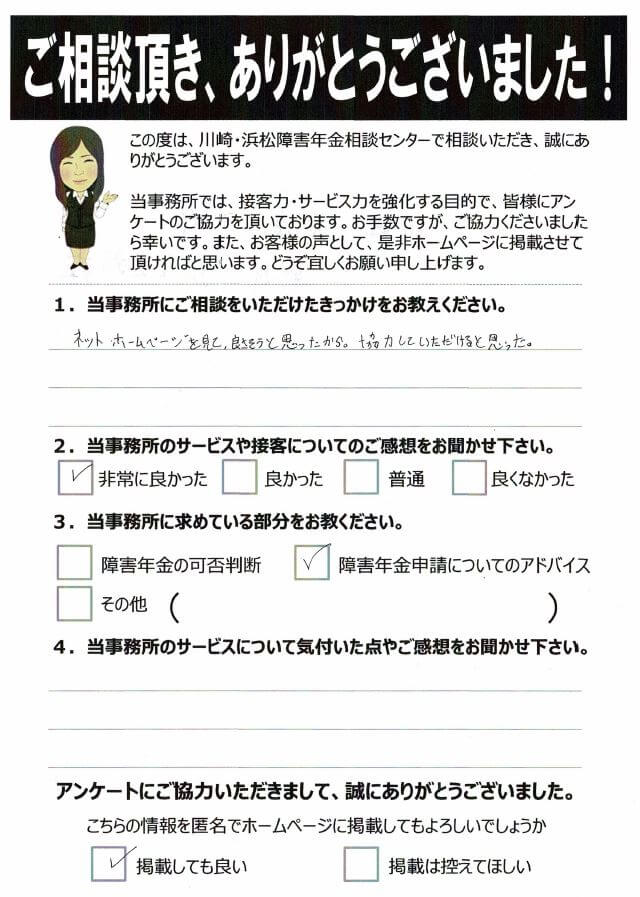 ご相談頂き、ありがとうございました！
この度は、川崎・浜松障害年金相談センターで相談いただき、誠にあ
りがとうございます。
当事務所では、接客力・サービス力を強化する目的で、皆様にアン
ケートのご協力を頂いております。お手数ですが、ご協力くださいました
ら幸いです。また、お客様の声として、是非ホームページに掲載させて
頂ければと思います。どうぞ宜しくお願い申し上げます。
1．当事務所にご相談をいただけたきっかけをお教えください。
ネット ホームページを見て、良さそうと思ったから。協力していただけると思った。
2．当事務所のサービスや接客についてのご感想をお聞かせ下さい。
非常に良かった 良かった 普通 良くなかった
3．当事務所に求めている部分をお教ください。
障害年金の可否判断 障害年金申請についてのアドバイス
その他 ( )
4．当事務所のサービスについて気付いた点やご感想をお聞かせ下さい。
アンケートにご協力いただきまして、誠にありがとうございました。
こちらの情報を匿名でホームページに掲載してもよろしいでしょうか
掲載しても良い 掲載は控えてほしい